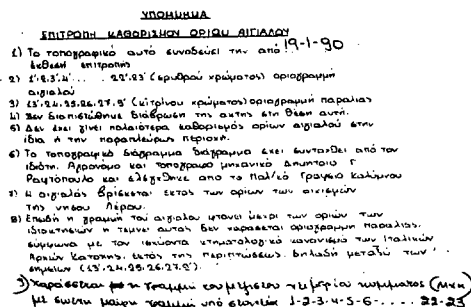 ΥΠΟΜΝΗΜΑ
ΕΠΙΤΡΟΠΗ ΚΑΘΟΡΙΣΜΟΥ ΟΡΙΩΝ ΑΙΓΙΑΛΟΥ
1) Το τοπογραφικό αυτό συνοδεύει την από 19-1-90
έκθεση επιτροπής
2) 1'.2'.3'.4'... 22'.23' (ερυθρού χρώματος) οριογραμμή
αιγιαλού
3) 13'.24.25.26.27.9' (κίτρινου χρώματος) οριογραμμή παραλίας
4) Δεν διαπιστώθηκε διάβρωση της ακτής στη θέση αυτή.
5) Δεν έχει γίνει παλαιότερα καθορισμός ορίων αιγιαλού στην
ίδια ή την παραπλεύρως περιοχή.
6) Το τοπογραφικό διάγραμμα διάγραμμα έχει συνταχθεί από τον
ιδιώτη Αγρονόμο και τοπογράφο μηχανικό Δημήτριο Γ
Ραφτόπουλο και ελέγχθηκε από το Πολ/κό Γραφείο Καλύμνου
7) Η αιγιαλός βρίσκεται εκτός των ορίων των οικισμών
της νήσου Λέρου.
8) Επειδή η γραμμή του αιγιαλού φτάνει μέχρι των ορίων των
ιδιοκτησιών ή τέμνει αυτάς δεν χαράσεται οριογραμμή παραλίας,
σύμφωνα με τον ισχύοντα κτηματολογικό κανονισμό των Ιταλικών
Αρχών Κατοχής, εκτός της περιπτώσεως, δηλαδή μεταξύ των
σημείων (13'.24.25.26.27.9').
9) Χαράσσεται η γραμμή του μεγίστου χειμερίου κύματος (ΜΧΚ)
με μαύρη γραμμή υπό στοιχεία 1-2-3-4-5-6-.... 22-23